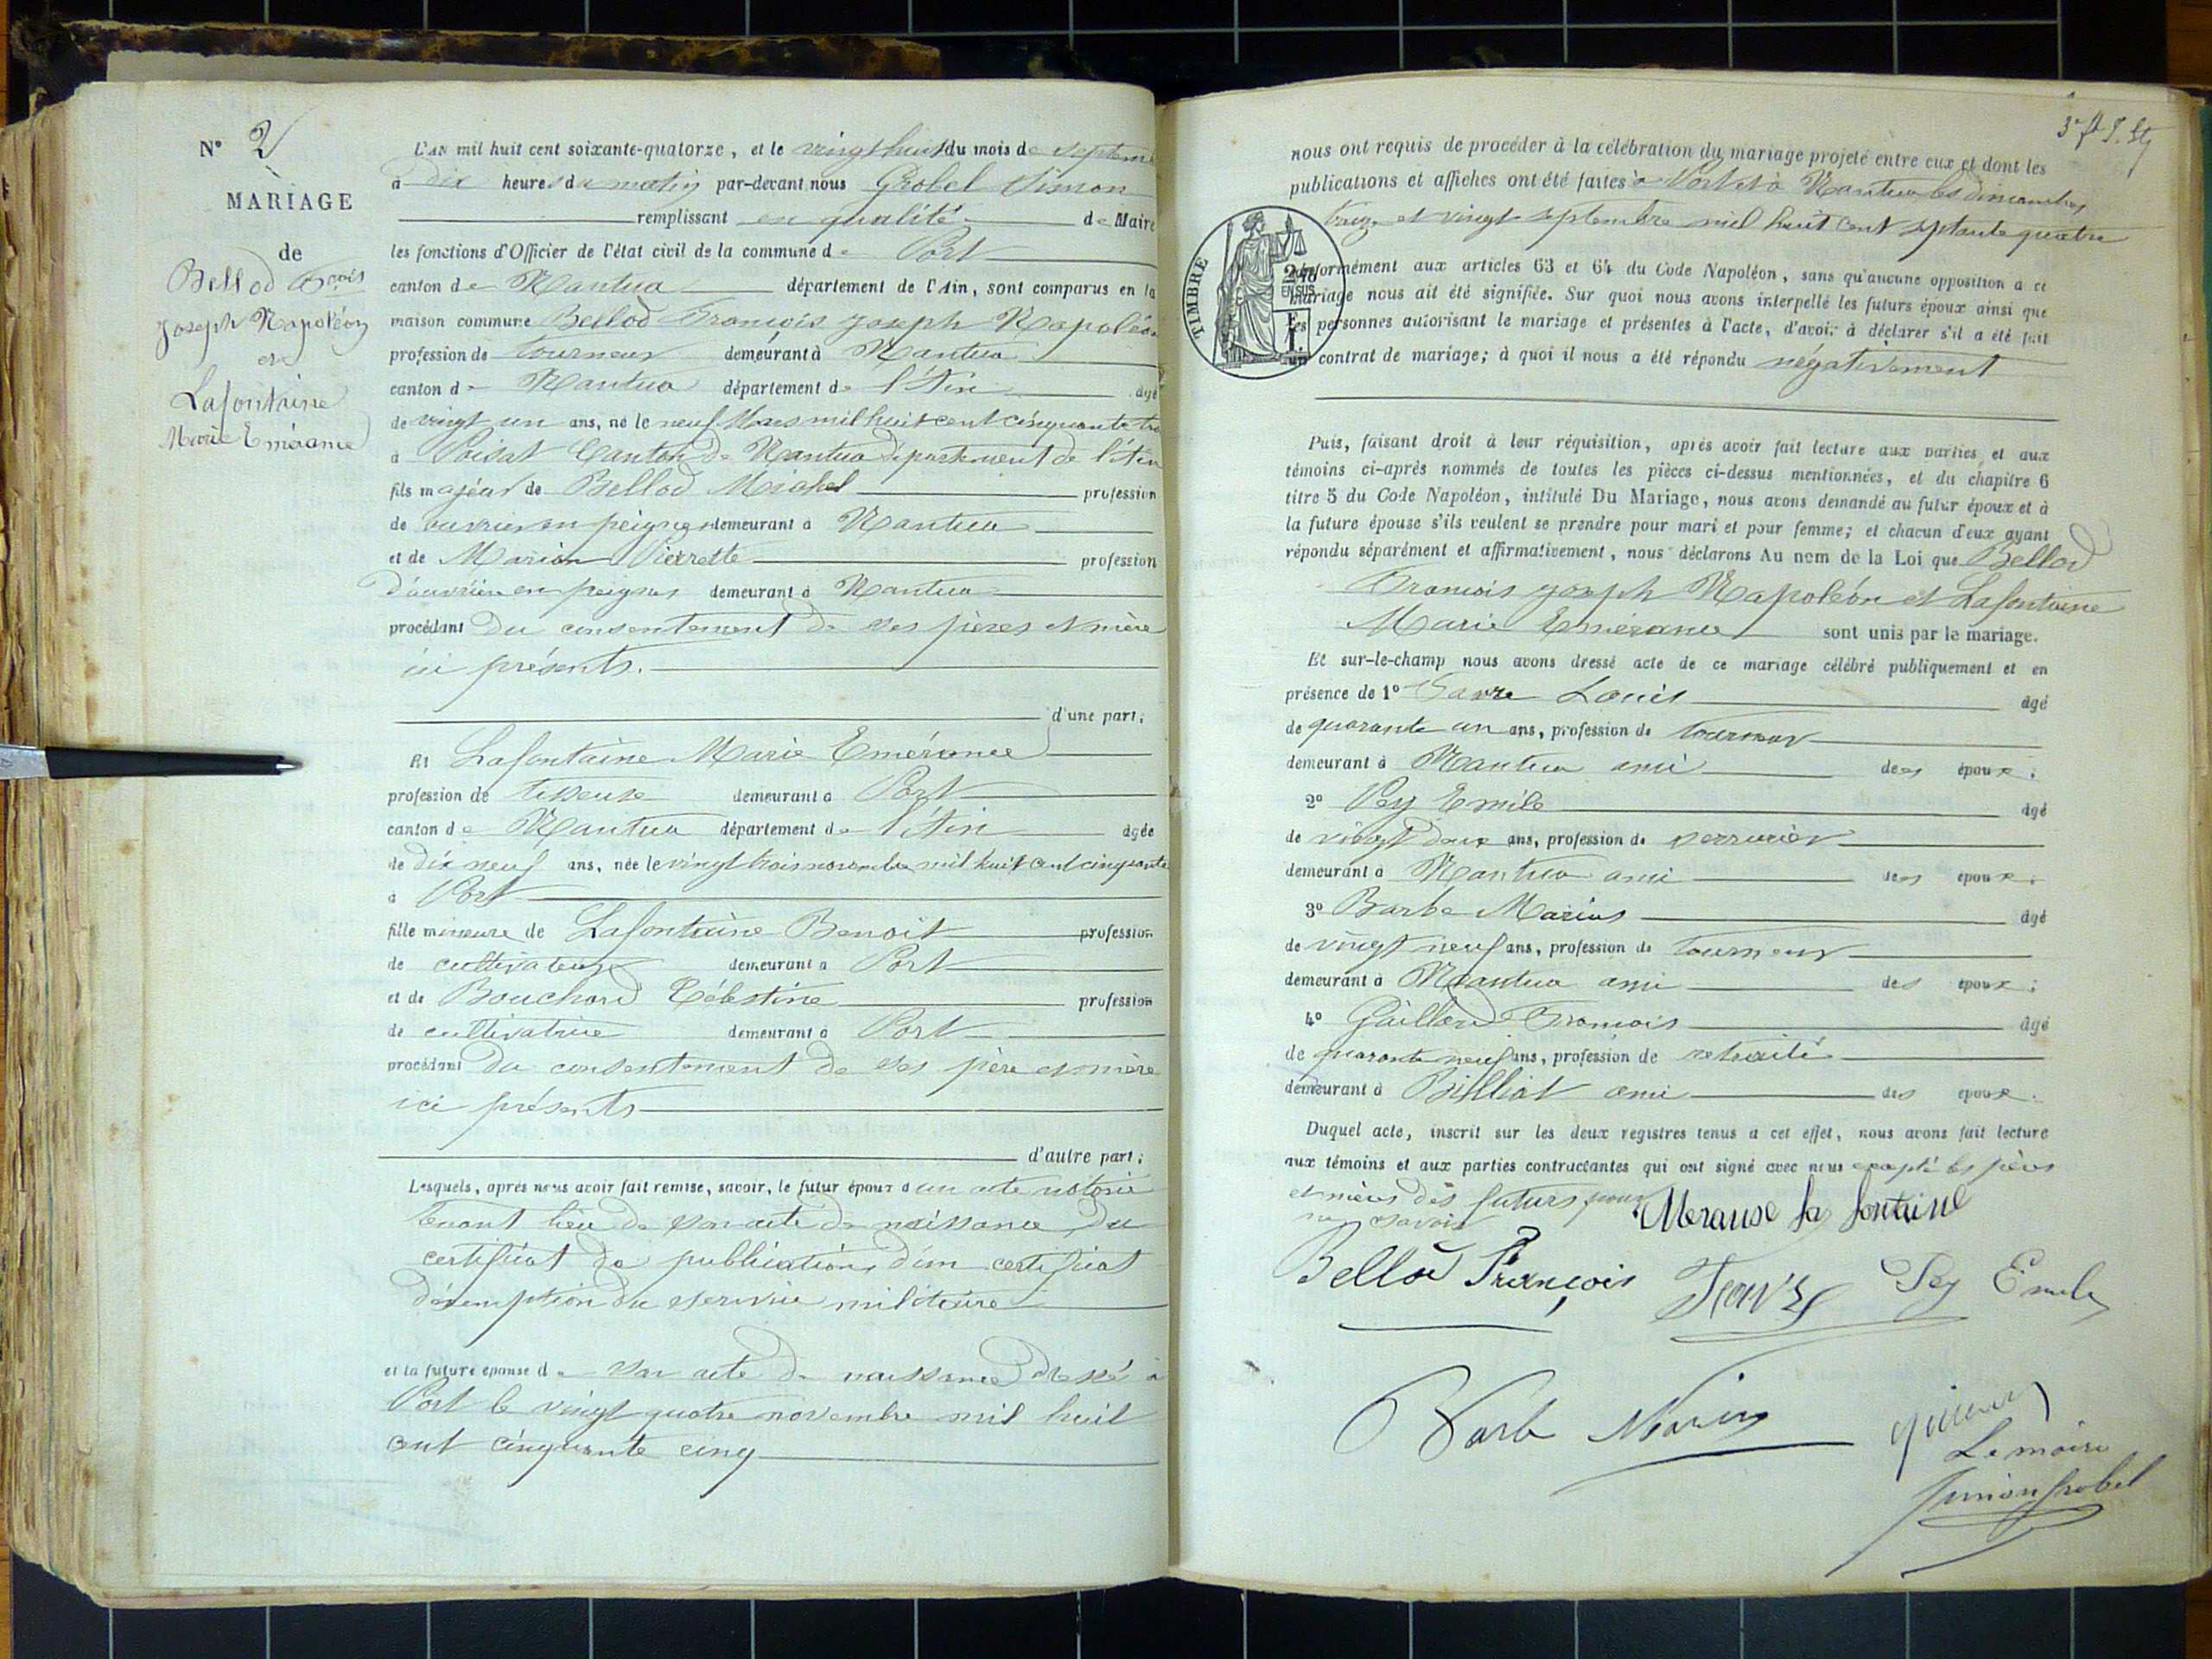 N° 2
MARIAGE
de
Bellod Fçois
Joseph Napoléon
et
Lafontaine
Marie Emérance
L'AN mil huit cent soixante-quatorze, et le vingt huit du mois de septem
à dix heures du matin par-devant nous Grobel Simon
remplissant en qualité de Maire
les fonctions d'Officier de l'état civil de la commune de Port
canton de Nantua département de l'Ain, sont comparus en la
maison commune Bellod François Joseph Napoléon
profession de tourneur demeurant à Nantua
canton de Nantua département de l'Ain âgé
de vingt un ans, né le neuf Mars mil huit cent cinquante tro
à Poisat Canton de Nantua département de l'Ain
fils majeur de Bellod Michel profession
de ouvrier en peignes demeurant à Nantua
et de Marion Pierrette profession
d'ouvrière en peignes demeurant à Nantua
procédant du consentement de ses pères et mère
ici présents.
d'une part;
Et Lafontaine Marie Emérance
profession de tisseuse demeurant à Port
canton de Nantua département de l'Ain âgée
de dix neuf ans, née le vingt trois novembre mil huit cent cinquante
à Port
fille mineure de Lafontaine Benoit profession
de cultivateur demeurant à Port
et de Bouchard Célestine profession
de cultivatrice demeurant à Port
procédant du consentement de ses père et mère
ici présents
d'autre part;
Lesquels, après nous avoir fait remise, savoir, le futur époux d'un acte notorié
tenant lieu de son acte de naissance, du
certificat de publication, d'un certificat
d'exemption du service militaire
et la future épouse de son acte de naissance dressé à
Port le vingt quatre novembre mil huit
cent cinquante cinq
nous ont requis de procéder à la célébration du mariage projeté entre eux et dont les
publications et affiches ont été faites à Port et à Nantua les dimanches
treize et vingt septembre mil huit cent septante quatre
TIMBRE
conformément aux articles 63 et 64 du Code Napoléon, sans qu'aucune opposition a ce
mariage nous ait été signifiée. Sur quoi nous avons interpellé les futurs époux ainsi que
les personnes autorisant le mariage et présentes à l'acte, d'avoir à déclarer s'il a été fait
un contrat de mariage; à quoi il nous a été répondu négativement
Puis, faisant droit à leur réquisition, après avoir fait lecture aux parties et aux
témoins ci-après nommés de toutes les pièces ci-dessus mentionnées, et du chapitre 6
titre 5 du Code Napoléon, intitulé Du Mariage, nous avons demandé au futur époux et à
la future épouse s'ils veulent se prendre pour mari et pour femme; et chacun d'eux ayant
répondu séparément et affirmativement, nous déclarons Au nom de la Loi que Bellod
François Joseph Napoléon et Lafontaine
Marie Emérance sont unis par le mariage.
Et sur-le-champ nous avons dressé acte de ce mariage célébré publiquement et en
présence de 1° Favre Louis âgé
de quarante un ans, profession de tourneur
demeurant à Nantua ami des époux;
2° Pey Emile âgé
de vingt deux ans, profession de serrurier
demeurant à Nantua ami des époux;
3° Barbe Marius âgé
de vingt neuf ans, profession de tourneur
demeurant à Nantua ami des époux;
4° Gaillard François âgé
de quarante neuf ans, profession de retraité
demeurant à Billiat ami des époux.
Duquel acte, inscrit sur les deux registres tenus à cet effet, nous avons fait lecture
aux témoins et aux parties contractantes qui ont signé avec nous excepté les pères
et mères des futurs pour
ne savoir
Merause la fontaine
Bellod François
Pey Emile
Barbe Marius
Le maire
Simon Grobel